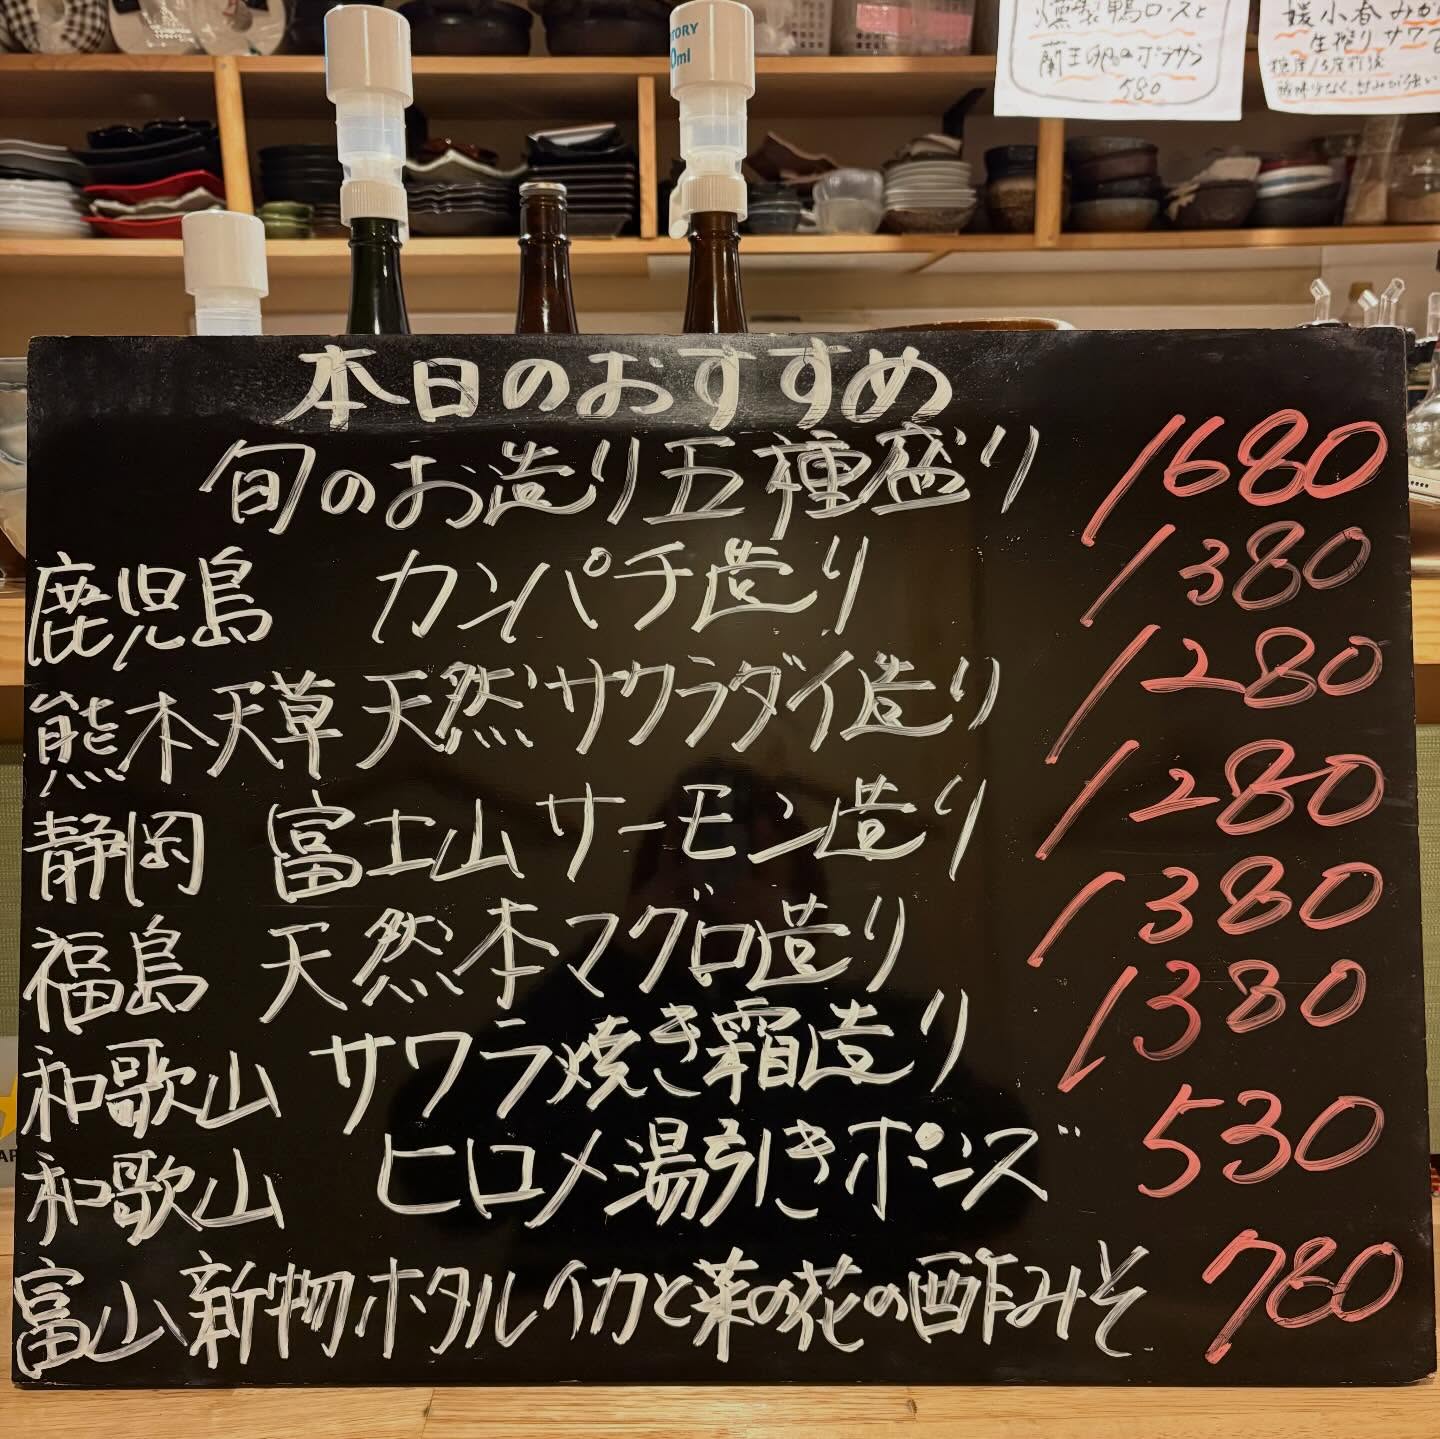 燻製鴨ロースと
蘭王卵のポテサラ
580
媛小春みか
生搾りサワー
TORY
0ml
本日のおすすめ
旬のお造り五種盛り 1680
鹿児島 カンパチ造り 1380
熊本天草 天然サクラダイ造り 1280
静岡 富士山サーモン造り 1280
福島 天然本マグロ造り 1380
和歌山 サワラ焼き霜造り 1380
和歌山 ヒロメ湯引きポンズ 530
富山 新物ホタルイカと菜の花の酢みそ 780